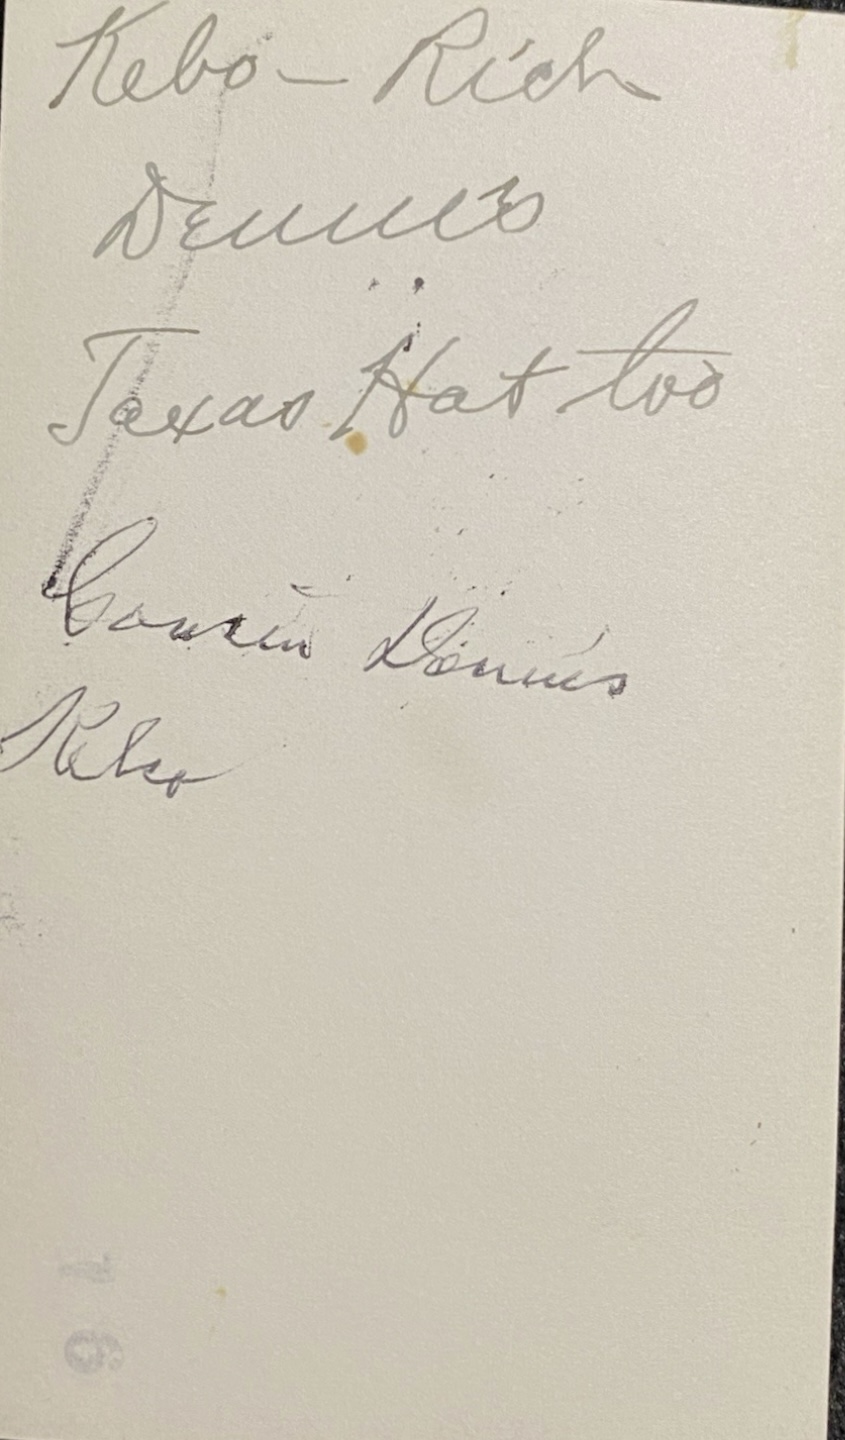 Kebo - Rich
Dennis
Texas Hat too
Cousin Dennis
Kebo